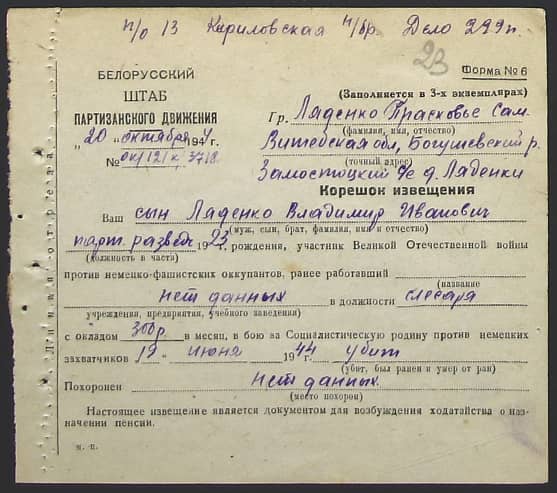 п/о 13 Кириловская п/бр. Дело 299п.
23
Форма № 6
БЕЛОРУССКИЙ
ШТАБ
ПАРТИЗАНСКОГО ДВИЖЕНИЯ
„20" октября 1944 г.
№
(Заполняется в 3-х экземплярах)
Гр. Ладенко Прасковье Сам.
(фамилия, имя, отчество)
Витебская обл, Богушевский р.
(точный адрес)
Замостоцкий с/с д. Ладенки
Корешок извещения
Ваш сын Ладенко Владимир Иванович
(муж, сын, брат, фамилия, имя и отчество)
парт. развед 1923 г. рождения, участник Великой Отечественной войны
(должность в части)
против немецко-фашистских оккупантов, ранее работавший
(название
нет данных в должности слесаря
учреждения, предприятия, учебного заведения)
с окладом 300р. в месяц, в бою за Социалистическую родину против немецких
захватчиков 19 „ июня 1944 г. убит
(убит, был ранен и умер от ран)
Похоронен нет данных
(место похорон)
Настоящее извещение является документом для возбуждения ходатайства о наз-
начении пенсии.
м. п.
Линия отреза